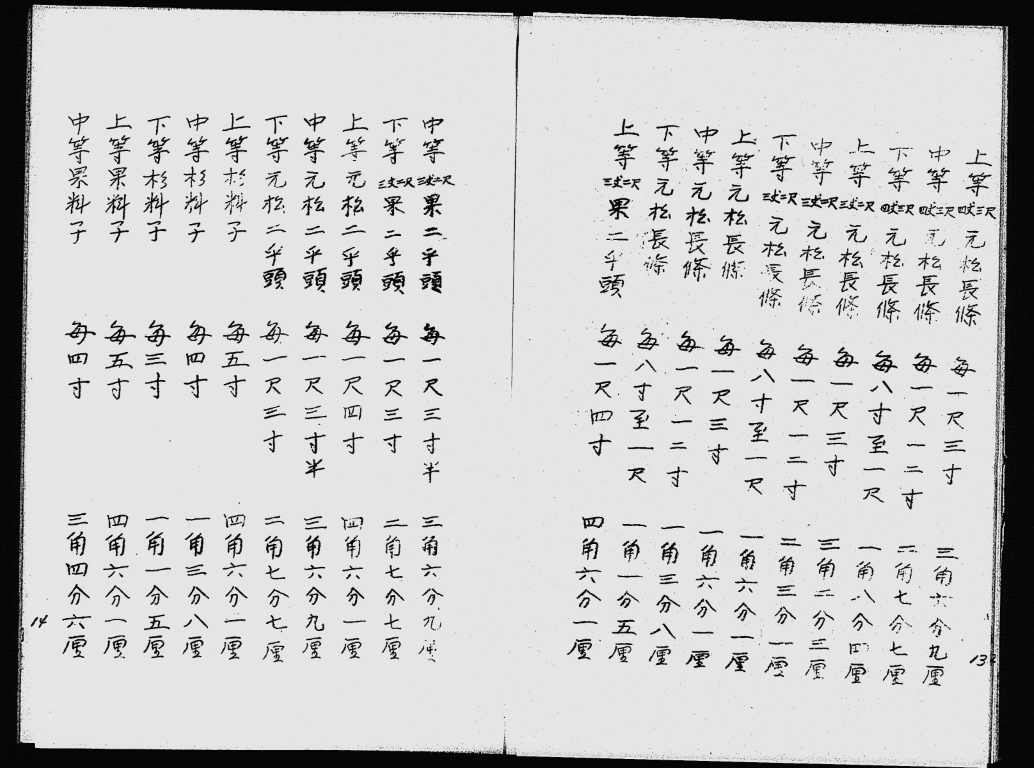 上等四丈二尺元松長條 每一尺三寸 三角六分九厘
中等四丈二尺元松長條 每一尺一二寸 二角七分七厘
下等四丈二尺元松長條 每八寸至一尺 一角八分四厘
上等三丈二尺元松長條 每一尺三寸 三角二分三厘
中等三丈二尺元松長條 每一尺一二寸 二角三分一厘
下等三丈二尺元松長條 每八寸至一尺 一角六分一厘
上等元松長條 每一尺三寸 一角六分一厘
中等元松長條 每一尺一二寸 一角三分八厘
下等元松長條 每八寸至一尺 一角一分五厘
上等三丈二尺果二乎頭 每一尺四寸 四角六分一厘
13
中等三丈二尺果二乎頭 每一尺三寸半 三角六分九厘
下等三丈二尺果二乎頭 每一尺三寸 二角七分七厘
上等元松二乎頭 每一尺四寸 四角六分一厘
中等元松二乎頭 每一尺三寸半 三角六分九厘
下等元松二乎頭 每一尺三寸 二角七分七厘
上等杉料子 每五寸 四角六分一厘
中等杉料子 每四寸 一角三分八厘
下等杉料子 每三寸 一角一分五厘
上等果料子 每五寸 四角六分一厘
中等果料子 每四寸 三角四分六厘
14